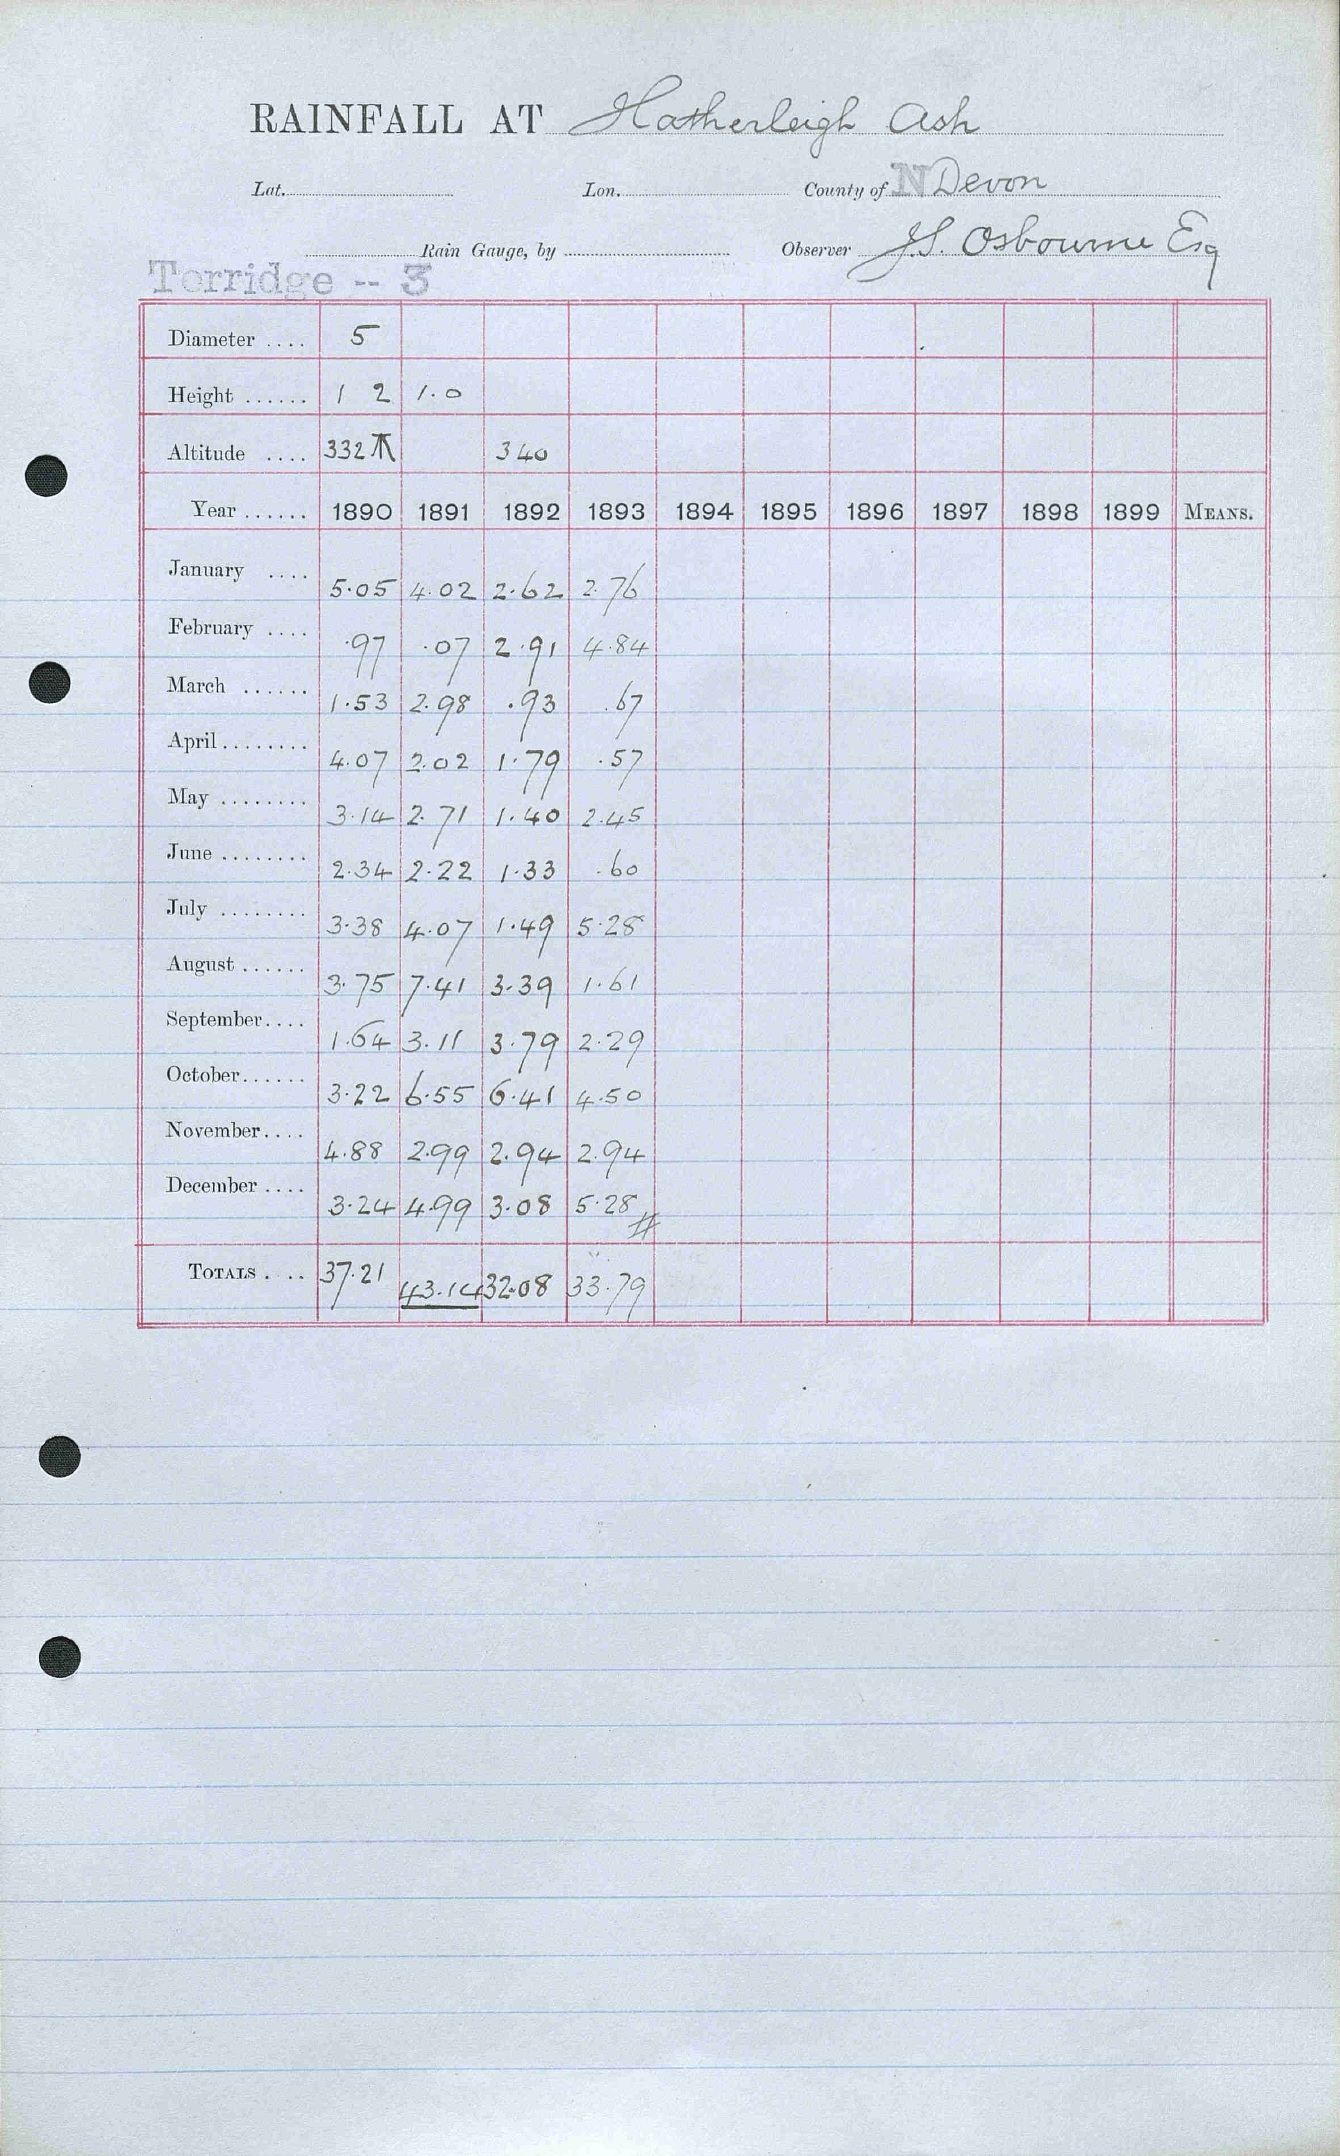 RAINFALL AT Hatherleigh Ash
Lat. Lon. County of N Devon
Rain Gauge, by Observer J.S. Osbourne Esq
Torridge -- 3
Diameter .... 5
Height ...... 1 2 1.0
Altitude .... 332 340
Year ...... 1890 1891 1892 1893 1894 1895 1896 1897 1898 1899 MEANS.
January .... 5.05 4.02 2.62 2.76
February .... .97 .07 2.91 4.84
March ...... 1.53 2.98 .93 .67
April ........ 4.07 2.02 1.79 .57
May ........ 3.14 2.71 1.40 2.45
June ........ 2.34 2.22 1.33 .60
July ........ 3.38 4.07 1.49 5.28
August ...... 3.75 7.41 3.39 1.61
September .... 1.64 3.11 3.79 2.29
October ...... 3.22 6.55 6.41 4.50
November .... 4.88 2.99 2.94 2.94
December .... 3.24 4.99 3.08 5.28 #
TOTALS .... 37.21 43.14 32.08 33.79